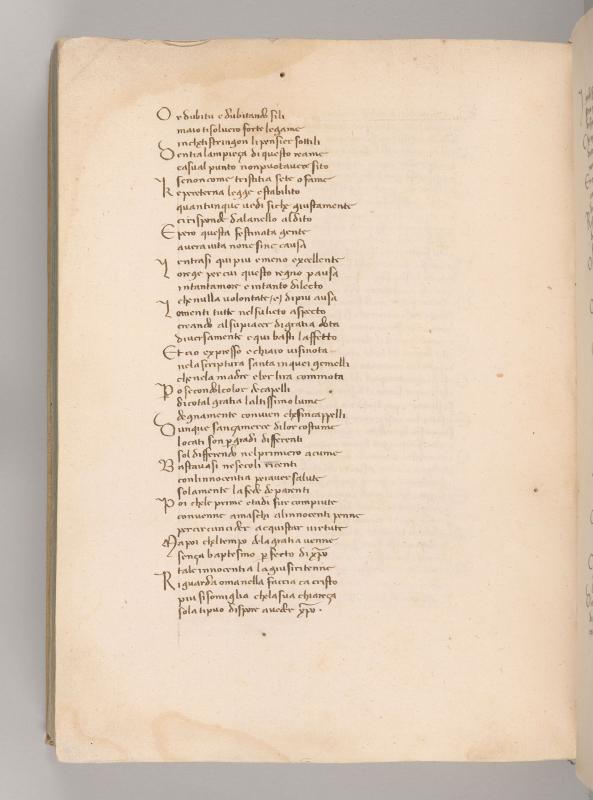 Or dubitu e dubitando sili
maio ti solvero forte legame
inchetistringon li pensier sottili
Dentra lampieça di questo reame
casual punto non puotavere sito
se non come tristitia sete o fame
Ke per eterna legge e stabilito
quantunque vedi siche giustamente
ci risponde dalanello aldito
E pero questa festinata gente
avera vita none sine causa
entrasi qui piu e meno excellente
Lo rege per cui questo regno pausa
in tantamore e in tanto dilecto
che nulla volontate e di piu ausa
Le menti tutte nel su lieto aspecto
creando al su piacer di gratia dota
diversamente e qui basti laffetto
Et cio expresso e chiaro visinota
nela scriptura santa in quei gemelli
che nela madre eber lira commota
Po secondol color de capelli
di cotal gratia laltissimo lume
degnamente convien chesincappelli
Dunque sança merce di lor costume
locati son p gradi differenti
sol differendo nel primiero acume
Bastavasi ne secoli ricenti
con linnocentia per aver salute
solamente la fede de parenti
Poi che le prime etadi fur compiute
convenne a maschi alinnocenti penne
per circuncidere acquistar virtute
Ma poi chel tempo dela gratia venne
sença baptesmo pfecto di xpo
tale innocentia la giu si ritenne
Riguarda oma nella faccia ca cristo
piu si somiglia che la sua chiareça
sola ti puo disporre a vedere xpo.